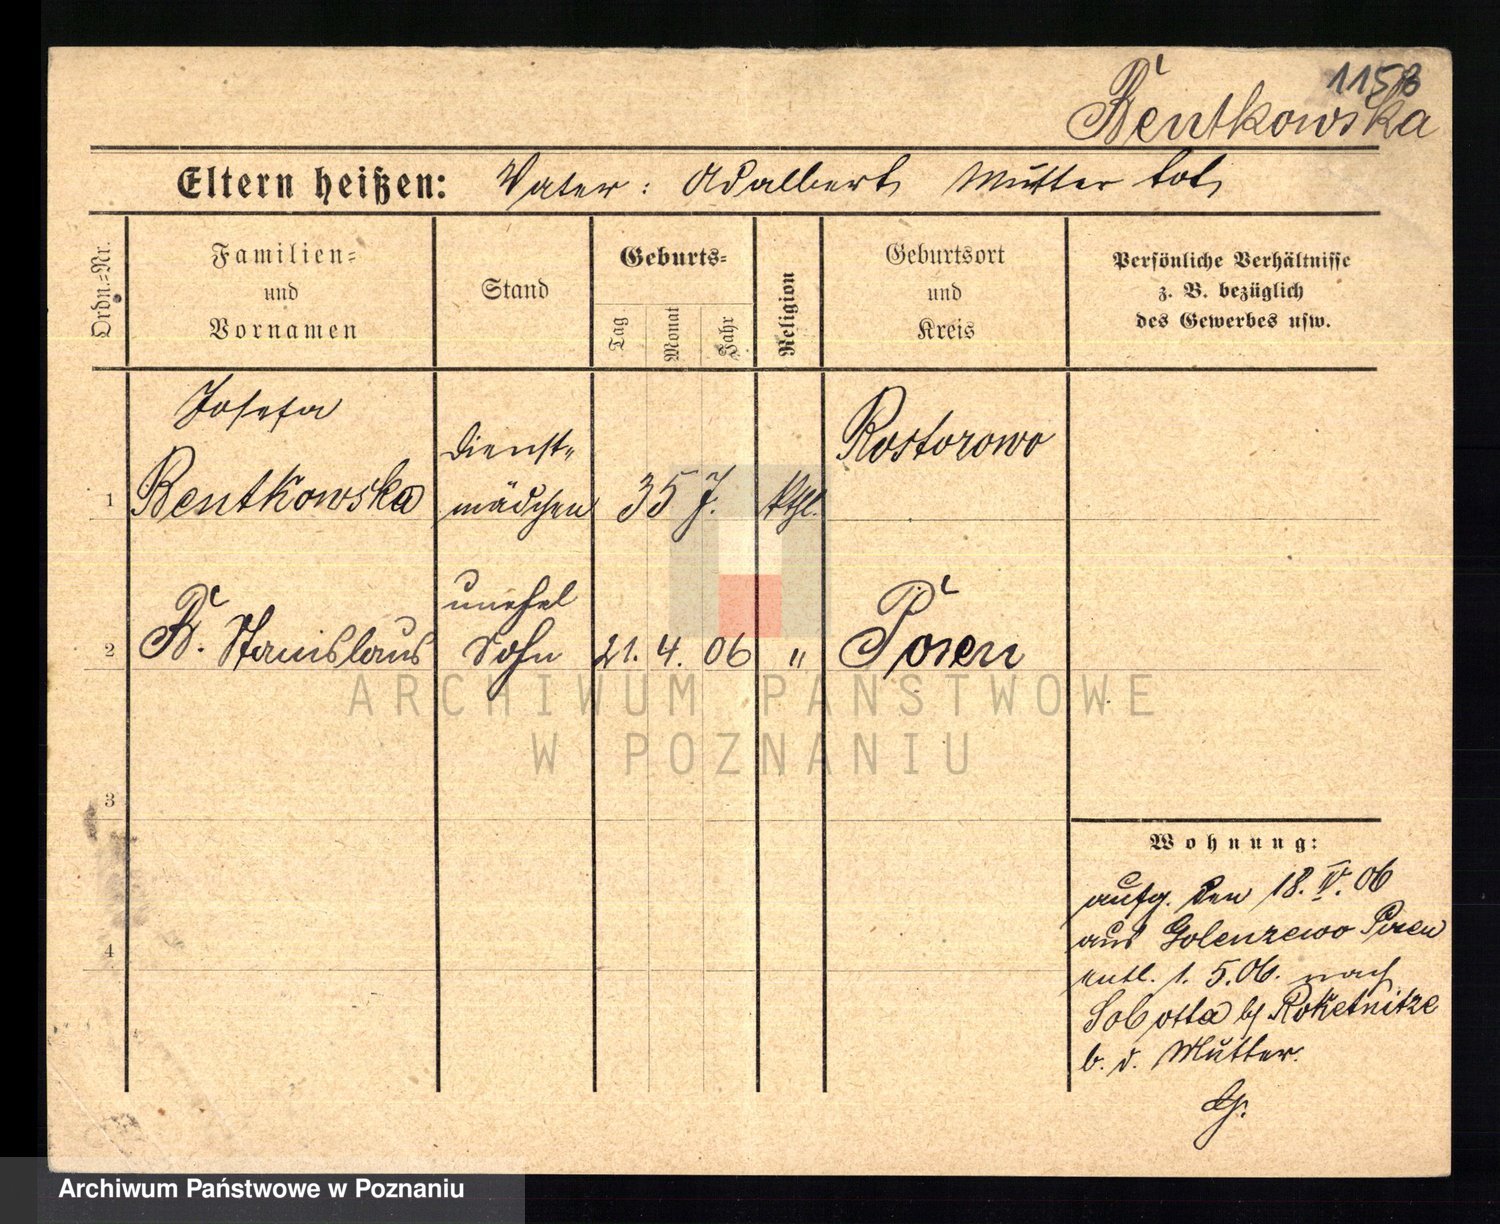 1158
Bentkowska
Eltern heißen: Vater: Adalbert, Mutter tot,
Ordn.=Nr.
Familien=
und
Vornamen
Stand
Geburts=
Tag
Monat
Jahr
Religion
Geburtsort
und
Kreis
Persönliche Verhältnisse
z. B. bezüglich
des Gewerbes usw.
1
Josefa
Bentkowska
Dienst=
mädchen
35 J.
kthl.
Rostorowo
2
B. Stanislaus
unehel
Sohn
21. 4. 06
"
Posen
3
4
Wohnung:
aufg. den 18. IV. 06
aus Golenzewo Posen
entl. 1. 5. 06. nach
Sobotta b/ Roketnitze
b. d. Mutter.
ARCHIWUM PAŃSTWOWE
W POZNANIU
Archiwum Państwowe w Poznaniu